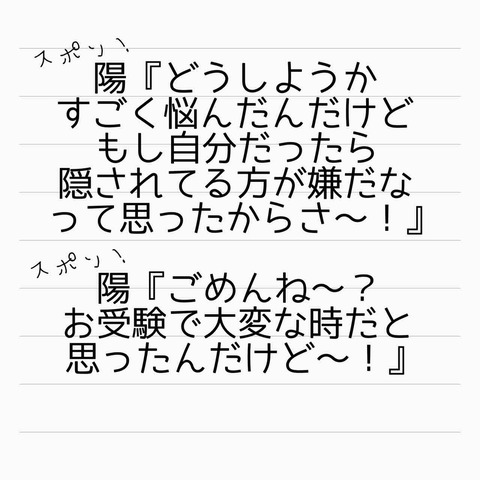 スポッ！
陽『どうしようか
すごく悩んだんだけど
もし自分だったら
隠されてる方が嫌だな
って思ったからさ〜！』
スポッ！
陽『ごめんね〜？
お受験で大変な時だと
思ったんだけど〜！』